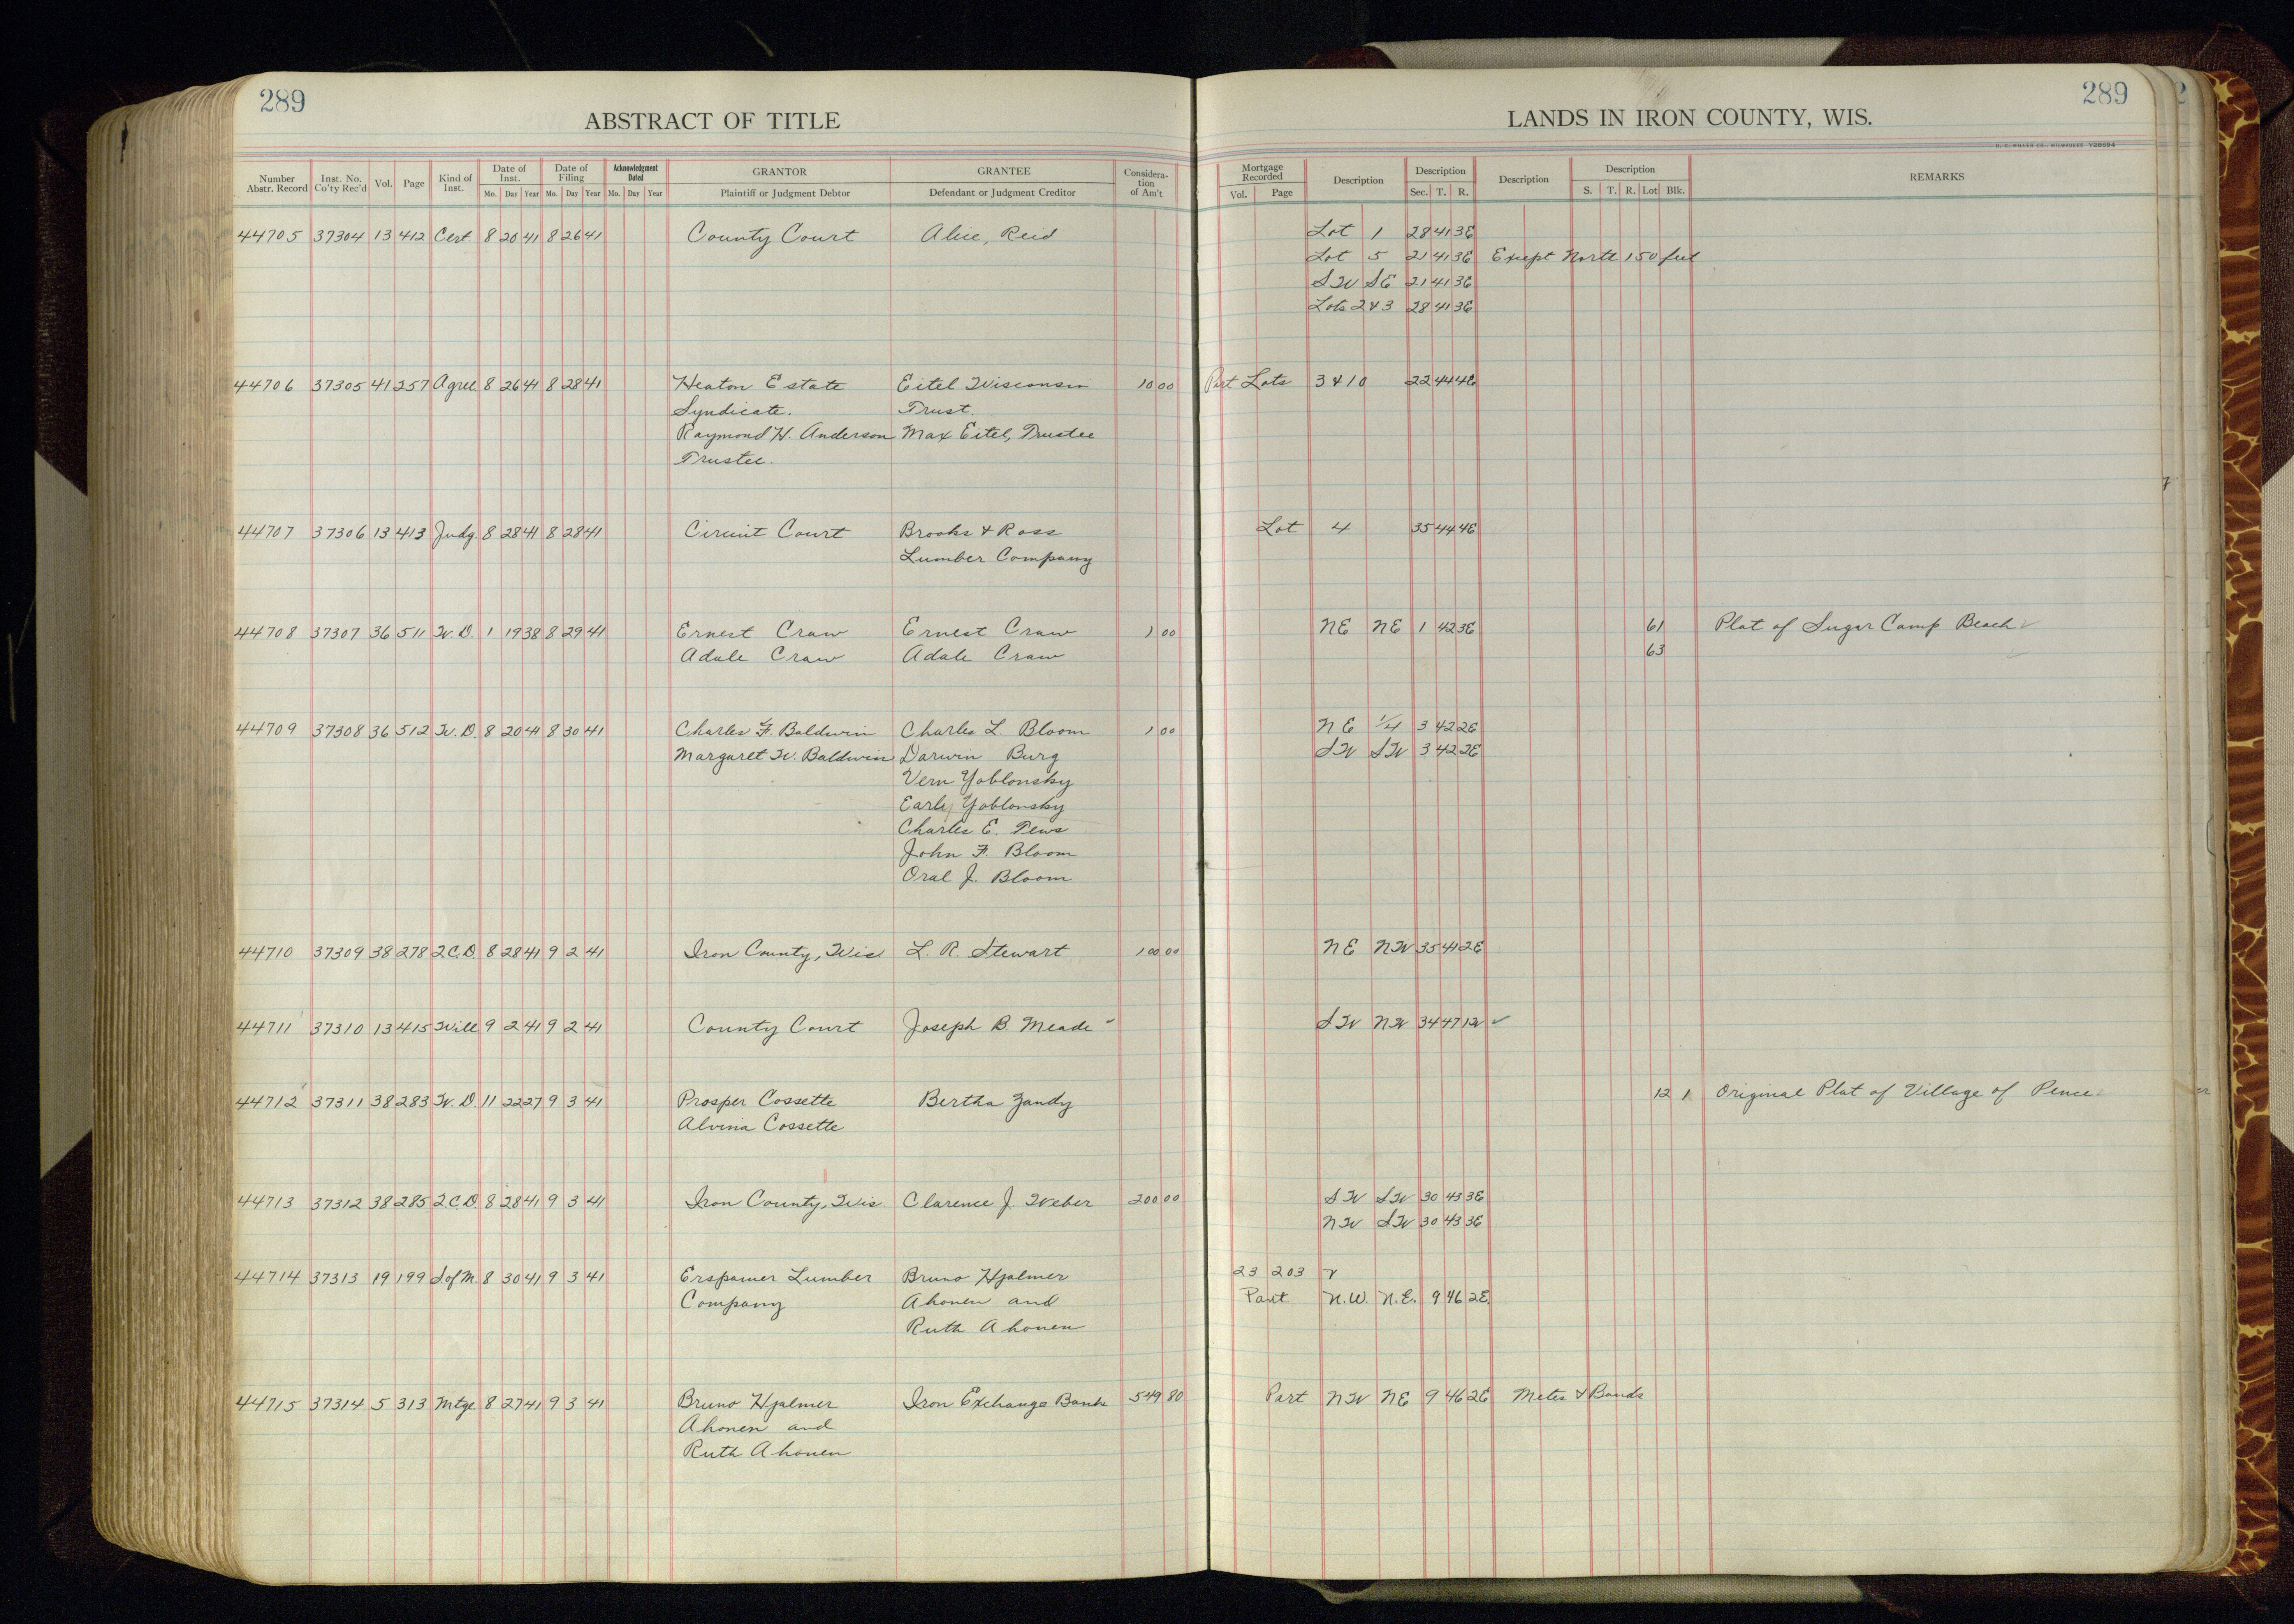 289
ABSTRACT OF TITLE
LANDS IN IRON COUNTY, WIS.
289
H. C. MILLER CO., MILWAUKEE
Number Abstr. Record | Inst. No. Co'ty Rec'd | Vol. | Page | Kind of Inst. | Date of Inst. Mo. Day Year | Date of Filing Mo. Day Year | Acknowledgment Dated Mo. Day Year | GRANTOR Plaintiff or Judgment Debtor | GRANTEE Defendant or Judgment Creditor | Consideration of Am't | Mortgage Recorded Vol. Page | Description | Description Sec. T. R. | Description | Description S. T. R. Lot Blk. | REMARKS
44705 37304 13 412 Cert 8 20 41 8 26 41 County Court Alice, Reid Lot 1 28 41 3E
Lot 5 21 41 3E Except North 150 feet
SW SE 21 41 3E
Lots 2 & 3 28 41 3E
44706 37305 41 257 Agree. 8 26 41 8 28 41 Heaton Estate Eitel Wisconsin 10 00 Part Lots 3 & 10 22 44 4E
Syndicate. Trust.
Raymond H. Anderson Max Eitel, Trustee
Trustee.
44707 37306 13 413 Judg. 8 28 41 8 28 41 Circuit Court Brooks & Ross Lot 4 35 44 4E
Lumber Company
44708 37307 36 511 W.D. 1 19 38 8 29 41 Ernest Craw Ernest Craw 1 00 NE NE 1 42 3E 61 Plat of Sugar Camp Beach
Adale Craw Adale Craw 63
44709 37308 36 512 W.D. 8 20 41 8 30 41 Charles F. Baldwin Charles L. Bloom 1 00 NE 1/4 3 42 2E
Margaret W. Baldwin Darwin Burg SW SW 3 42 2E
Vern Yoblonsky
Earl Yoblonsky
Charles E. Tews
John F. Bloom
Oral J. Bloom
44710 37309 38 278 Q.C.D. 8 28 41 9 2 41 Iron County, Wis L. R. Stewart 100 00 NE NW 35 41 2E
44711 37310 13 415 Will 9 2 41 9 2 41 County Court Joseph B. Meade SW NW 34 47 1W ✓
44712 37311 38 283 W.D. 11 22 27 9 3 41 Prosper Cossette Bertha Zandy 12 1 Original Plat of Village of Pence
Alvina Cossette
44713 37312 38 285 Q.C.D. 8 28 41 9 3 41 Iron County, Wis. Clarence J. Weber 200 00 SW SW 30 43 3E
NW SW 30 43 3E
44714 37313 19 199 S of M. 8 30 41 9 3 41 Erspamer Lumber Bruno Hjalmer 23 203
Company Ahonen and Part N.W. N.E. 9 46 2E.
Ruth Ahonen
44715 37314 5 313 Mtge 8 27 41 9 3 41 Bruno Hjalmer Iron Exchange Bank 549 80 Part NW NE 9 46 2E Metes & Bounds
Ahonen and
Ruth Ahonen